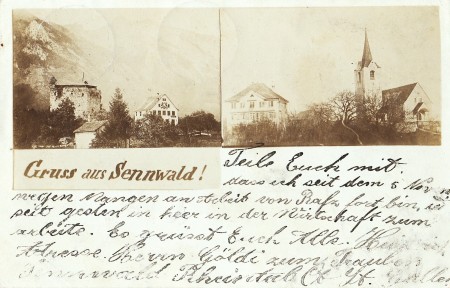 Gruss aus Sennwald!
Teile Euch mit.
dass ich seit dem 5 Nov
wegen Mangen an Arbeit von Rafz fort bin, u
seit gestern in hier in der Wirtschaft zum
arbeite. Es grüsst Euch Alle.
Adresse. Herrn Göldi zum Trauben
Sennwald Rheinthal Ct. St. Gallen